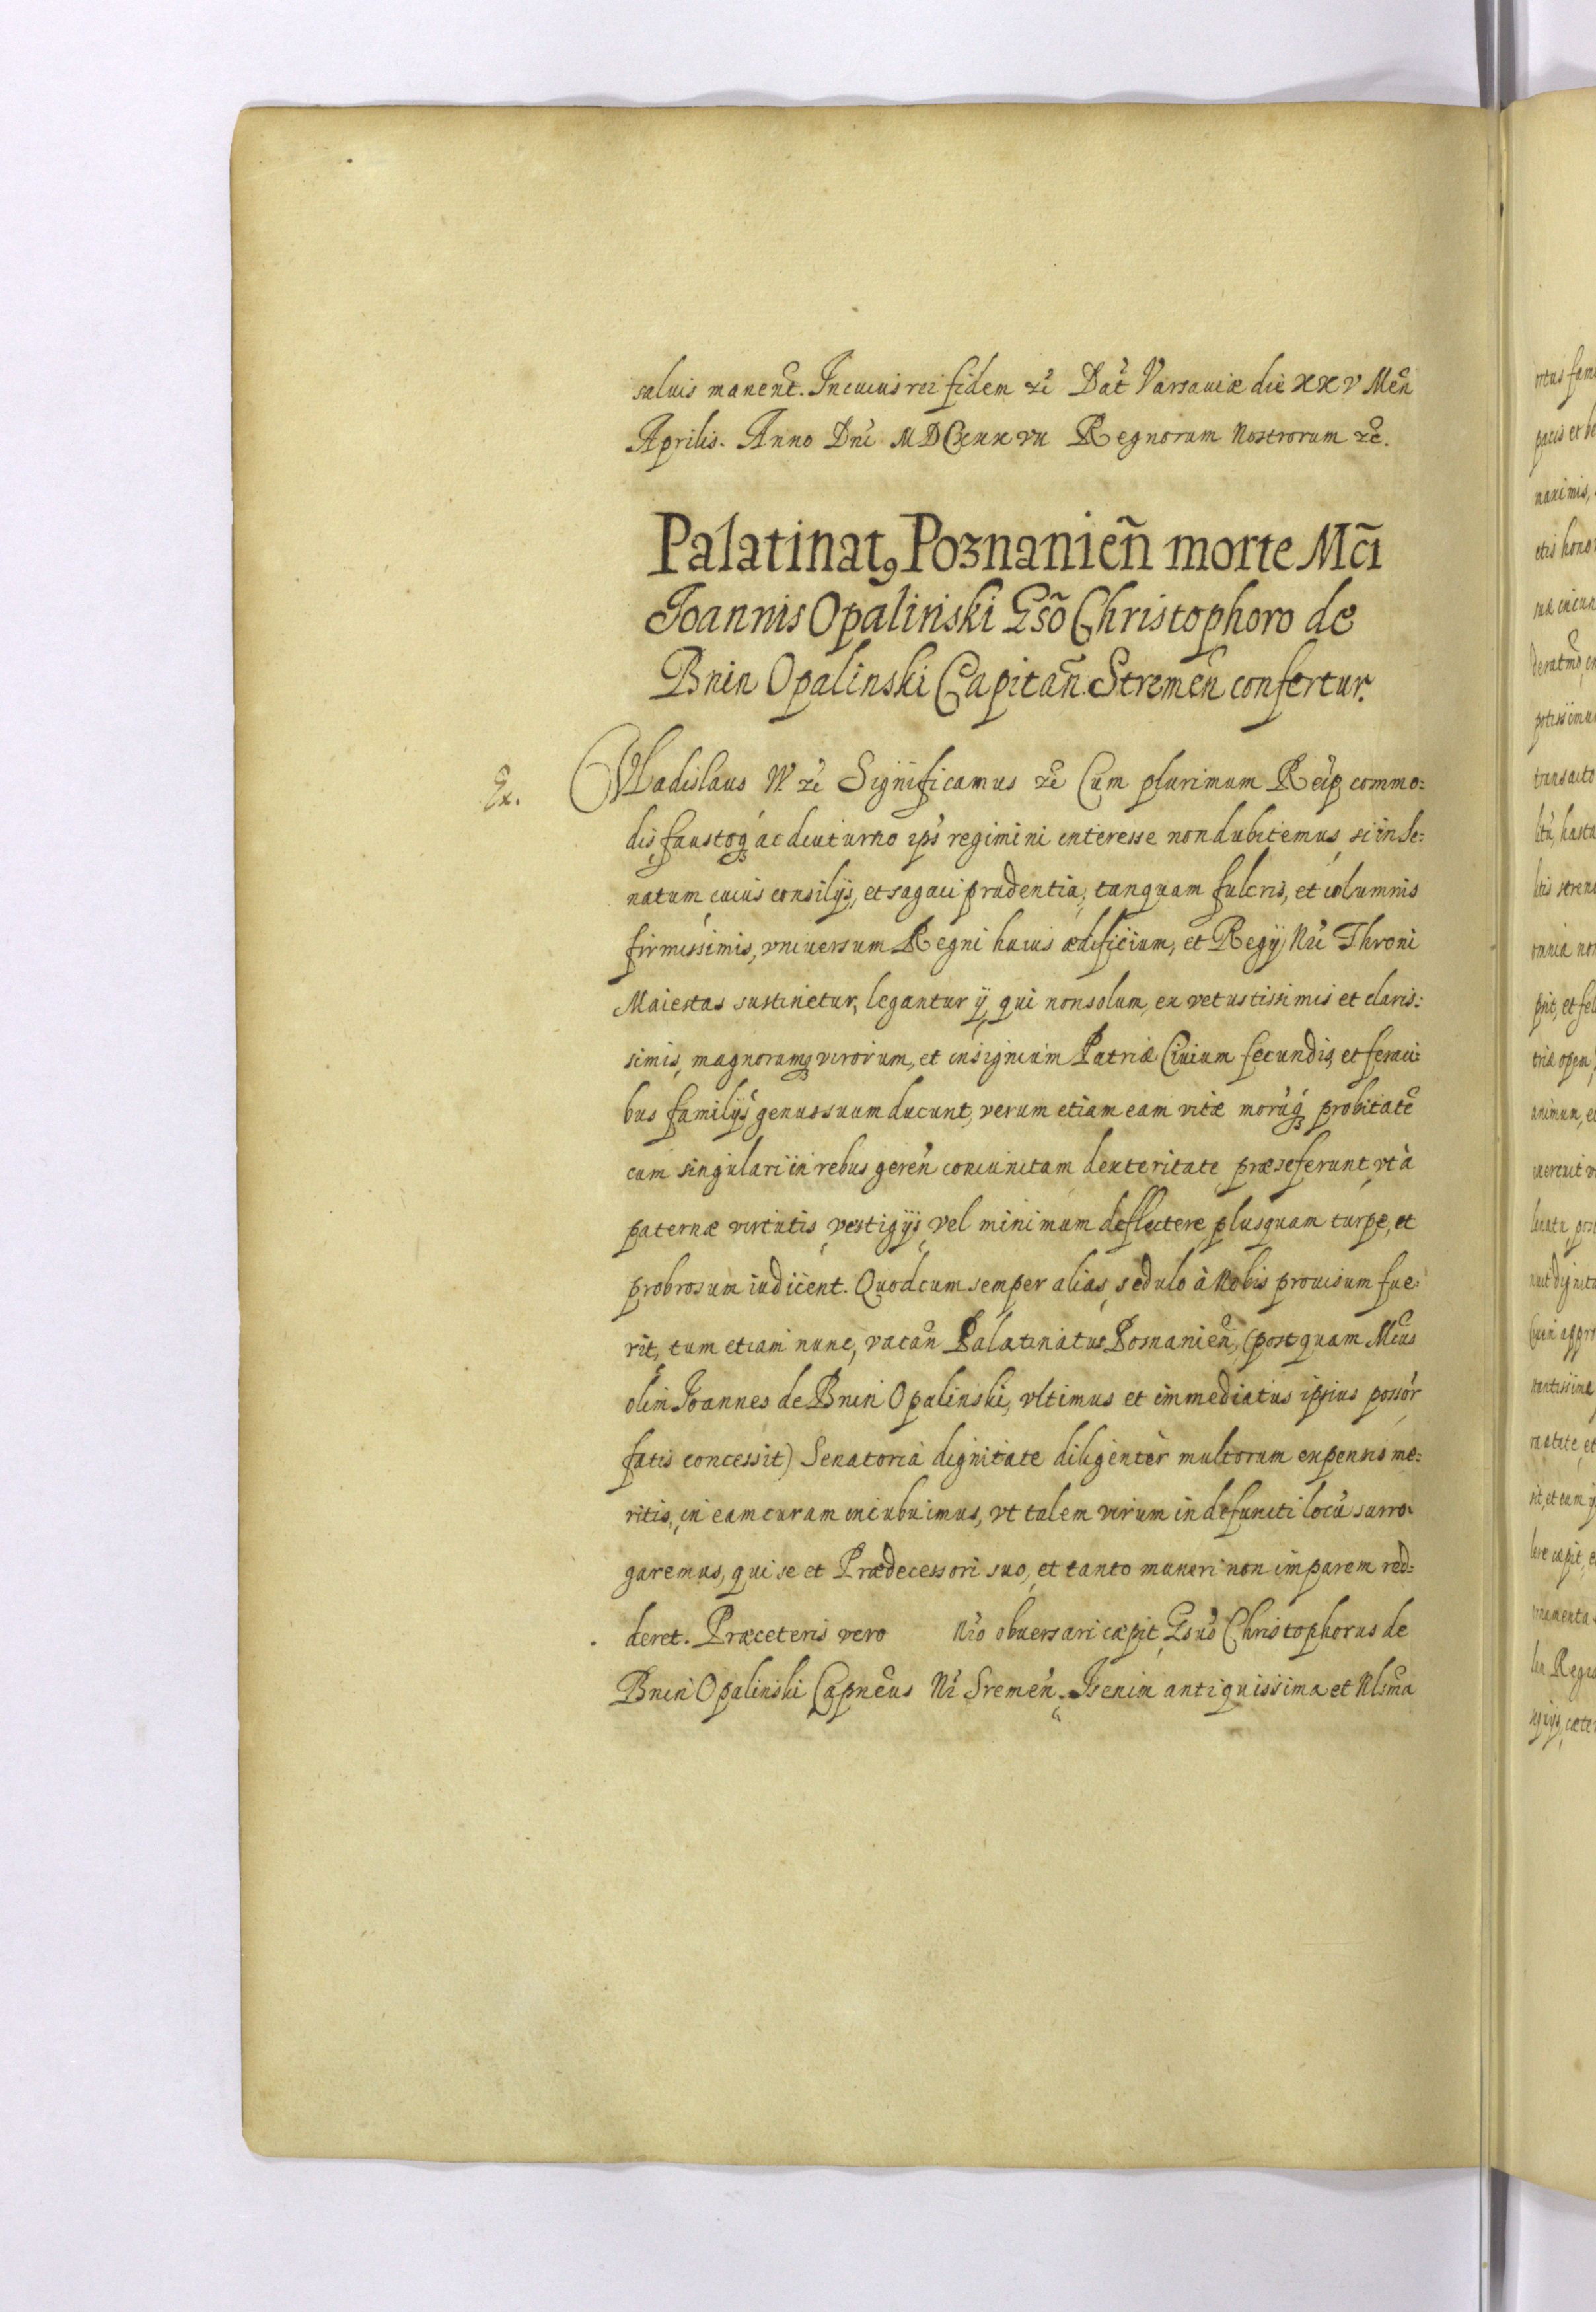 saluis manent. In cuius rei fidem etc Dat Varsauiæ die XXV Men
Aprilis. Anno Dni MDCXXXVII Regnorum Nostrorum etc.
Palatinatꝰ Poznanien̄ morte Mc̄i
Joannis Opalinski Gsō Christophoro de
Bnin Opalinski Capitan̄ Stremen̄ confertur.
Ex. Vladislaus IV. etc Significamus etc Cum plurimum Reip commo:
dis, faustoq ac diuturno ips regimini interesse non dubitemus, si in Se:
natum, cuius consilijs, et sagaci prudentia, tanquam fulcris, et columnis
firmissimis, vniuersum Regni huius ædificium, et Regij Nri Throni
Maiestas sustinetur, legantur ij, qui non solum, ex vetustissimis et claris:
simis, magnorumq virorum, et insignium Patriæ Ciuium fecundis, et feraci:
bus familijs genus suum ducunt, verum etiam eam vitæ morūq probitatē
cum singulari in rebus geren̄ coniunctam dexteritate præseferunt, vt à
paternæ virtutis, vestigijs, vel minimum deflectere, plusquam turpe, et
probrosum iudicent. Quod cum semper alias, sedulo à Nobis prouisum fue:
rit, tum etiam nunc, vacan̄ Palatinatus Posnanien̄, (postquam Mcūs
olim Joannes de Bnin Opalinski, vltimus et immediatus ipsius possōr
fatis concessit) Senatoria dignitate diligenter multorum expensis me:
ritis, in eam curam incubuimus, vt talem virum in defuncti locū surro:
garemus, qui se et Prædecessori suo, et tanto muneri non imparem red:
deret. Præ ceteris vero Nrō obuersari cæpit, Gsūs Christophorus de
Bnin Opalinski Capnēus Nr Sremen̄. Is enim antiquissima et Nlsma